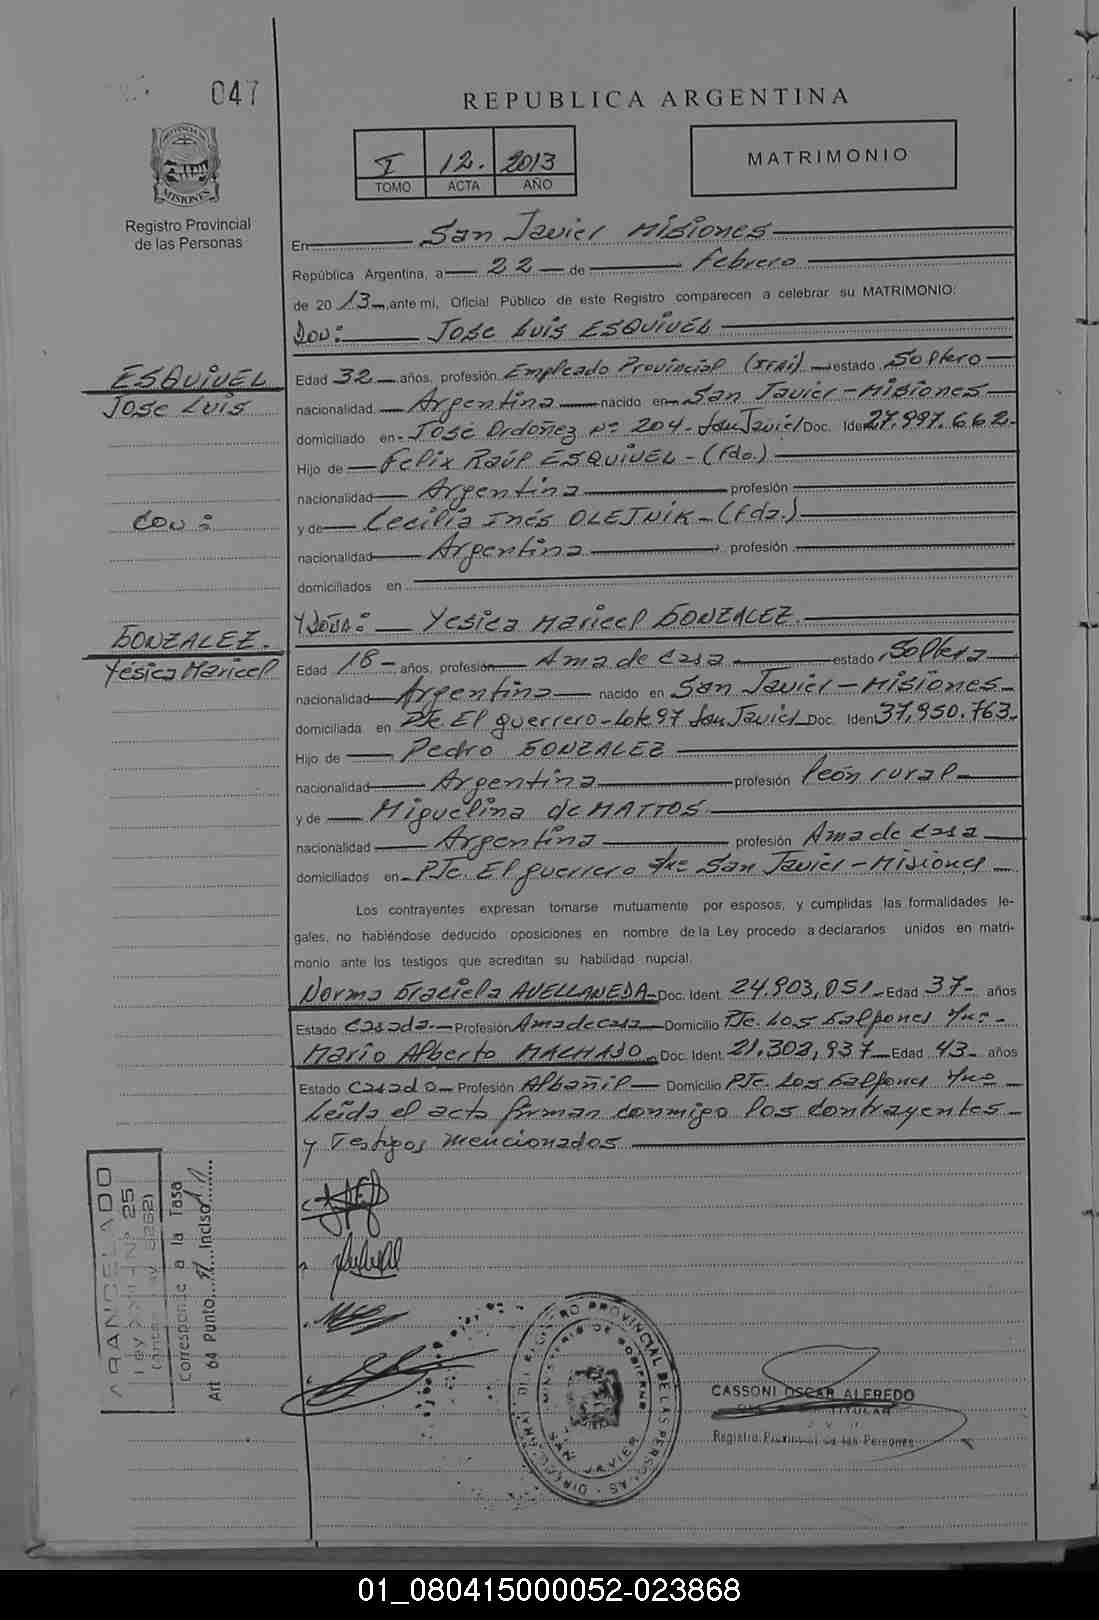 047
REPUBLICA ARGENTINA
I 12. 2013
TOMO ACTA AÑO
MATRIMONIO
PROVINCIA DE
MISIONES
Registro Provincial
de las Personas
En San Javier Misiones
República Argentina, a 22 de febrero
de 2013, ante mi, Oficial Público de este Registro comparecen a celebrar su MATRIMONIO:
Don: Jose Luis ESQUIVEL
ESQUIVEL
Jose Luis
Edad 32 años, profesión Empleado Provincial (IFAI) estado Soltero
nacionalidad Argentina nacido en San Javier - Misiones
domiciliado en José Ordoñez nº 204 - San Javier Doc. Iden 27.997.662
Hijo de Felix Raúl ESQUIVEL - (Fdo.)
nacionalidad Argentina profesión
con:
y de Cecilia Inés OLEJNIK - (Fda.)
nacionalidad Argentina profesión
domiciliados en
Y Doña: Yesica Maricel GONZALEZ.
GONZALEZ.
Yesica Maricel
Edad 18 años, profesión Ama de casa estado Soltera
nacionalidad Argentina nacido en San Javier - Misiones
domiciliada en Pje. El guerrero - Lote 97 San Javier Doc. Iden 37.950.763
Hijo de Pedro GONZALEZ
nacionalidad Argentina profesión Peón rural
y de Miguelina de MATTOS
nacionalidad Argentina profesión Ama de casa
domiciliados en Pje. El guerrero San Javier - Misiones
Los contrayentes expresan tomarse mutuamente por esposos, y cumplidas las formalidades le-
gales, no habiéndose deducido oposiciones en nombre de la Ley procedo a declararlos unidos en matri-
monio ante los testigos que acreditan su habilidad nupcial.
Norma Graciela AVELLANEDA Doc. Ident. 24.903.051 Edad 37 años
Estado Casada Profesión Ama de casa Domicilio Pje. Los Galpones
Mario Alberto MACHADO Doc. Ident. 21.302.937 Edad 43 años
Estado Casado Profesión Albañil Domicilio Pje. Los Galpones
Leída el acta firman conmigo los contrayentes
y Testigos mencionados
ARANCELADO
Ley Nº 25
Corresponde a la Tasa
Art 64 Punto Inciso
REGISTRO PROVINCIAL DE LAS PERSONAS
MINISTERIO DE GOBIERNO
SAN JAVIER
CASSONI OSCAR ALFREDO
TITULAR
Registro Provincial de las Personas
01_080415000052-023868